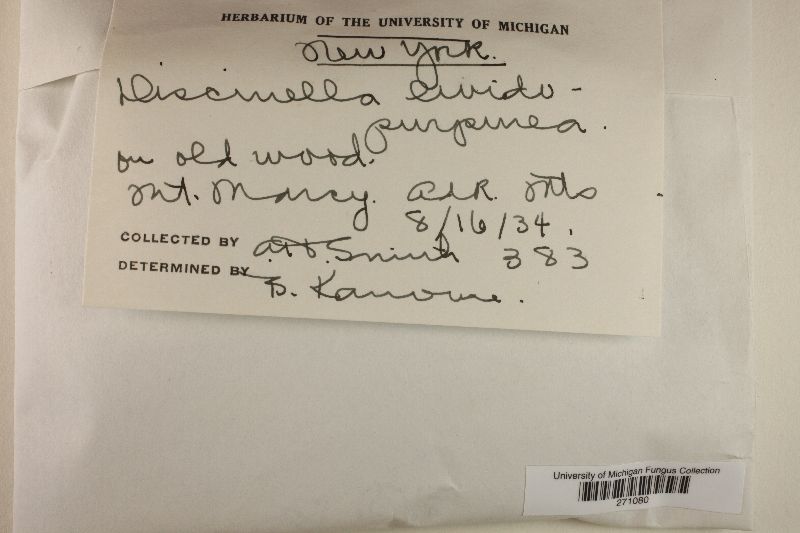 HERBARIUM OF THE UNIVERSITY OF MICHIGAN
New York.
Discinella livido-
purpurea.
on old wood.
Mt. Marcy. Adr. Mts
8/16/34.
COLLECTED BY A.H. Smith 383
DETERMINED BY B. Kanouse.
University of Michigan Fungus Collection
271080